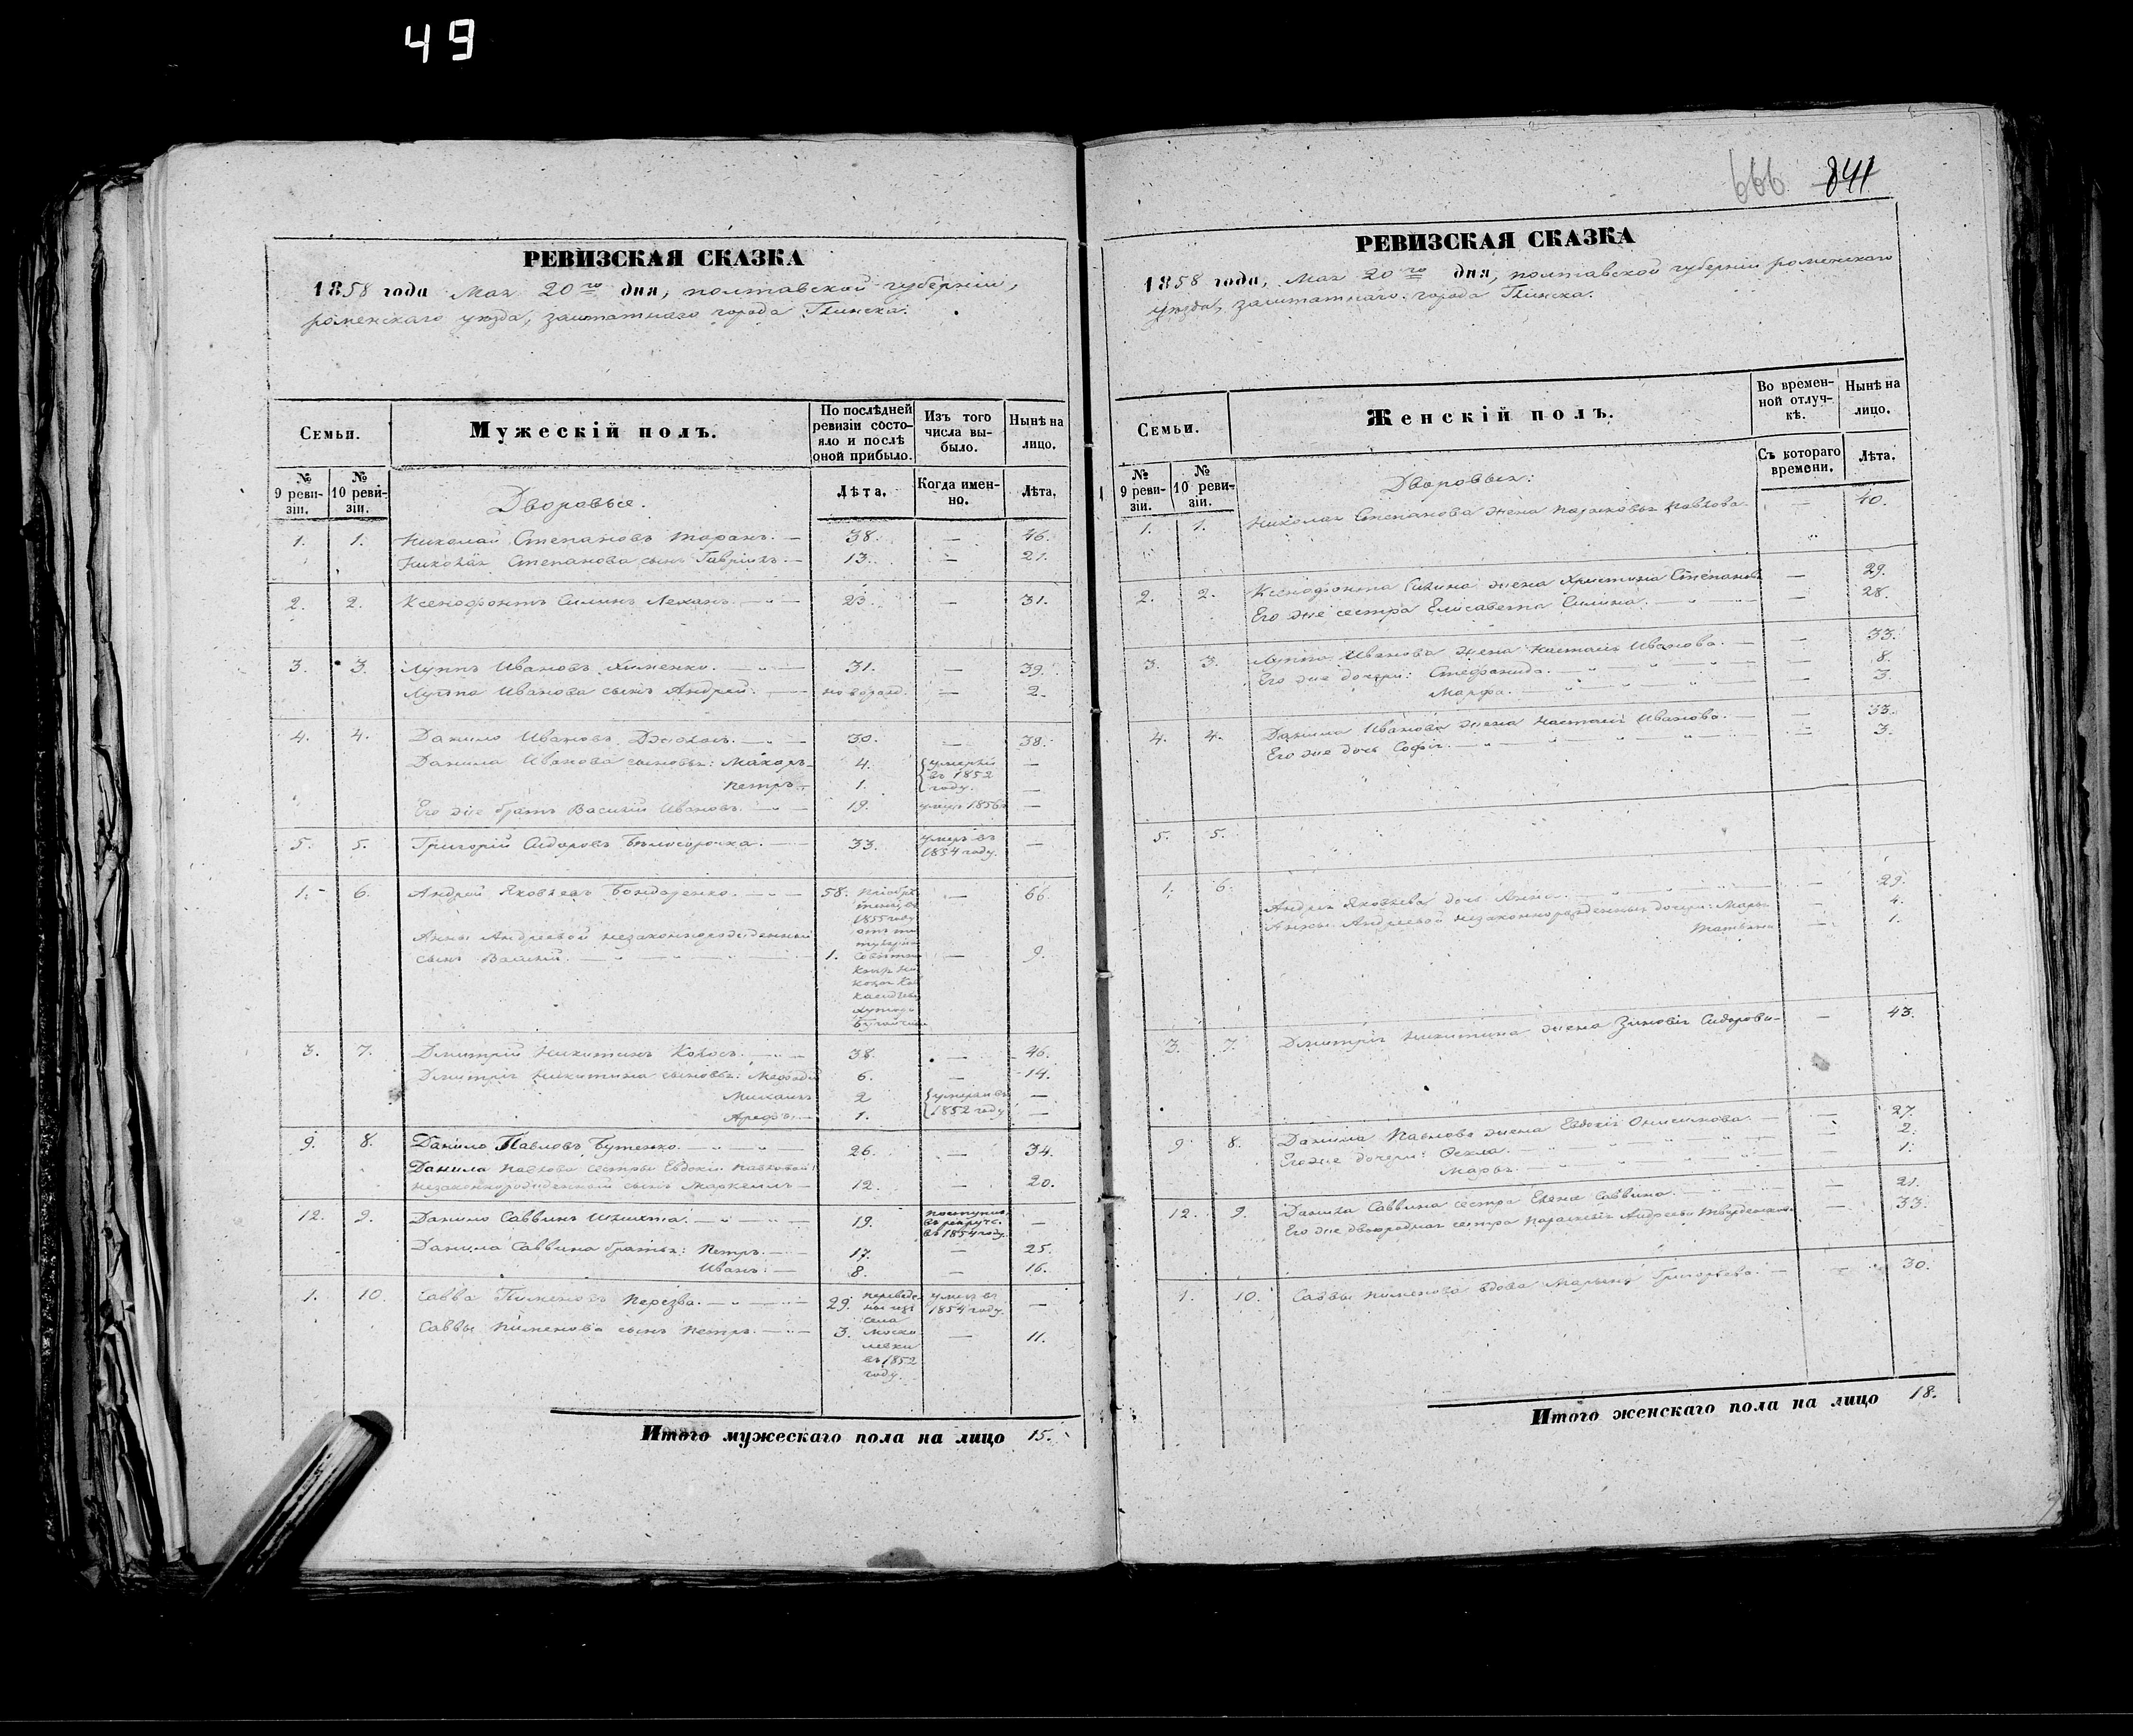 49
РЕВИЗСКАЯ СКАЗКА
1858 года Мая 20го дня, полтавской губерніи,
роменскаго уѣзда, заштатнаго города Глинска.
Семьи.
Мужескій полъ.
По послѣдней ревизіи состояло и послѣ оной прибыло.
Изъ того числа выбыло.
Нынѣ на лицо.
№ 9 ревизіи.
№ 10 ревизіи.
Дворовые.
Лѣта.
Когда именно.
Лѣта.
1. 1. Николай Степановъ 38. — 46.
Николая Степанова сынъ Гавріилъ — 13. — 21.
2. 2. Ксенофонтъ Силинъ 23. — 31.
3. 3. Луппъ Ивановъ Хименко. 31. — 39.
Луппа Иванова сынъ Андрей. — новорожд. — 2.
4. 4. Данило Ивановъ 30. — 38.
Данила Иванова сыновья: Макаръ 4. умерли въ 1852 году. —
Петръ 1. —
Его же братъ Василій Ивановъ. 19. 1856 —
5. 5. Григорій Сидоровъ Бѣлосорочка. 33. умеръ въ 1854 году. —
1. 6. Андрей Яковлевъ Бондаренко. 58. 66.
1855 году
Анны Андреевой незаконнорожденный
сынъ Василій. 1. — 9.
3. 7. Дмитрій Никитинъ Колосъ. 38. — 46.
Дмитрія Никитина сыновья: Мефодій 6. — 14.
Михаилъ 2 умерли въ 1852 году —
Арефъ. 1. —
9. 8. Данило Павловъ Бутенко. 26. — 34.
Данила Павлова сестры Евдокіи Павловой
незаконнорожденный сынъ Маркеллъ 12. — 20.
12. 9. Данило Саввинъ 19. поступилъ въ рекруты въ 1854 году. —
Данила Саввина братья: Петръ. 17. — 25.
Иванъ. 8. — 16.
1. 10. Савва Пименовъ Перезва. 29. переведены изъ села въ 1852 году. умеръ въ 1854 году. —
Саввы Пименова сынъ Петръ. 3. — 11.
Итого мужескаго пола на лицо 15.
666 841
РЕВИЗСКАЯ СКАЗКА
1858 года, Мая 20го дня, полтавской губерніи роменскаго
уѣзда, заштатнаго города Глинска.
Семьи.
Женскій полъ.
Во временной отлучкѣ.
Нынѣ на лицо.
№ 9 ревизіи.
№ 10 ревизіи.
Дворовыя:
Съ котораго времени.
Лѣта.
1. 1. Николая Степанова жена Парасковья Павлова — 40.
2. 2. Ксенофонта Силина жена Христина Степанова — 29.
Его же сестра Елисавета Силина. — 28.
3. 3. Луппа Иванова жена Настасія Иванова. — 33.
Его же дочери: Стефанида. — 8.
Марфа. — 3.
4. 4. Данила Иванова жена Настасія Иванова. — 33.
Его же дочь Софія. — 3.
5. 5.
1. 6. Андрея Яковлева дочь Анна. — 29.
Анны Андреевой незаконнорожденныя дочери: Марья — 4.
Татьяна — 1.
3. 7. Дмитрія Никитина жена Зиновія Сидорова — 43.
9 8. Данила Павлова жена Евдокія Онисимова. — 27.
Его же дочери: Ѳекла. — 2.
Марья. — 1.
12. 9. Данила Саввина сестра Елена Саввина. — 21.
Его же двоюродная сестра Параскевія Андреева — 33.
1. 10. Саввы Пименова вдова Марьяна Григорьева. — 30.
Итого женскаго пола на лицо 18.